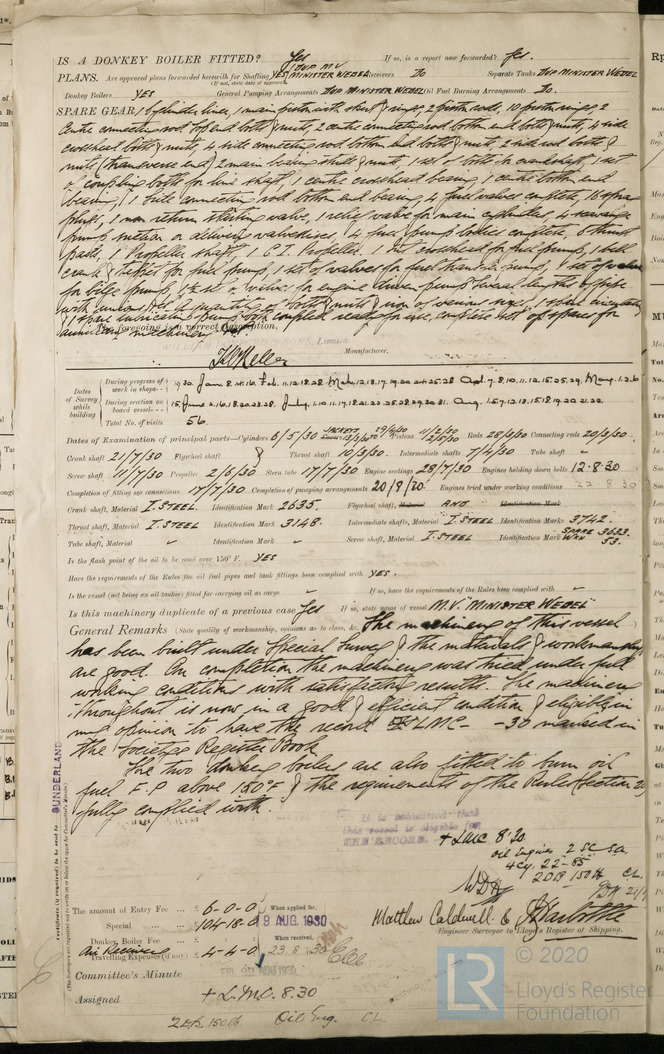 IS A DONKEY BOILER FITTED? Yes If so, is a report now forwarded? Yes.
DUP M.V
PLANS. Are approved plans forwarded herewith for Shafting YES MINISTER WEDEL Receivers Do Separate Tanks DUP MINISTER WEDEL
(If not, state date of approval)
Donkey Boilers YES General Pumping Arrangements DUP MINISTER WEDEL Oil Fuel Burning Arrangements Do.
SPARE GEAR 1 cylinder liner, 1 main piston with skirt & rings, 2 piston rods, 10 piston rings, 2
centre connecting rod top end bolts & nuts, 2 centre connecting rod bottom end bolts & nuts, 4 side
crosshead bolts & nuts, 4 side connecting rod bottom end bolts & nuts, 2 side rod bolts &
nuts (transverse end) 2 main bearing studs & nuts, 1 set of bolts for crankshaft, 1 set
of coupling bolts for line shaft, 1 centre crosshead bearing, 1 centre bottom end
bearing, 1 side connecting rod bottom end bearing, 4 fuel valves complete, 16
1 non return starting valve, 1 relief valve for main cylinders, 4 scavenge
pump suction or delivery valve, 4 fuel pump bodies complete, 6 thrust
pads, 1 Propeller shaft, 1 C.I. Propeller. crosshead for fuel pump, 1 bell
crank & tappet for fuel pump, 1 set of valves for fuel transfer pump, 1 set of valves
for bilge pump, set of valves for engine driven pump several lengths of pipe
with unions, A quantity of bolts & nuts & iron of various sizes, 1 spare
1 spare lubricating pump both coupled ready for use, complete set of spares for
The foregoing is a correct description,
auxiliary machinery
Manufacturer.
Dates of Survey while building
During progress of work in shops-- 1930. Jan. 8.14.16 Feb. 11.12.18.28 Mch. 12.18.17.19.20.24.25.28 Apl. 7.8.10.11.12.15.25.29. May. 1.2.6
During erection on board vessel--- 15, June 2.16.18.20.23.28. July. 1.10.11.17.18.21.22.25.28.29.30.31. Aug. 1.5.7.12.15.18.19.20.21.22.
Total No. of visits 56.
Dates of Examination of principal parts—Cylinders 6/5/30 JACKETS 29/4/30 Pistons 11/2/30 12/5/30 Rods 28/3/30 Connecting rods 20/3/30.
Crank shaft 21/7/30 Flywheel shaft Thrust shaft 10/3/30. Intermediate shafts 7/4/30 Tube shaft "
Screw shaft 11/7/30 Propeller 2/6/30 Stern tube 17/7/30 Engine seatings 28/7/30 Engines holding down bolts 12.8.30
Completion of fitting sea connections 17/7/30 Completion of pumping arrangements 20/8/30 Engines tried under working conditions 22.8.30
Crank shaft, Material I.STEEL Identification Mark 2635. Flywheel shaft, Material AND Identification Mark
Thrust shaft, Material I.STEEL Identification Mark 3148. Intermediate shafts, Material I.STEEL Identification Marks 3742.
SPARE 3623.
Tube shaft, Material " Identification Mark " Screw shaft, Material I.STEEL Identification Mark WKN 53.
Is the flash point of the oil to be used over 150° F. YES
Have the requirements of the Rules for oil fuel pipes and tank fittings been complied with YES.
Is the vessel (not being an oil tanker) fitted for carrying oil as cargo " If so, have the requirements of the Rules been complied with "
Is this machinery duplicate of a previous case Yes If so, state name of vessel M.V. "MINISTER WEDEL"
General Remarks (State quality of workmanship, opinions as to class, &c. The machinery of this vessel
has been built under Special Survey & the materials & workmanship
are good. On completion the machinery was tried under full
working conditions with satisfactory results. The machinery
throughout is now in a good & efficient condition & eligible in
my opinion to have the record LMC - -30 marked in
the Societys Register Book
The two donkey boilers are also fitted to burn oil
fuel F.P above 150°F & the requirements of the Rules (Section 20)
fully complied with.
SUNDERLAND
Certificate (if required) to be sent to
(The Surveyors are requested not to write on or below the space for Committee's Minute.)
It is submitted that
this vessel is eligible for
THE RECORD. + LMC 8.30.
Oil Engines 2 SC SA
4 Cy. 22-85
2DB 150 lb CL.
The amount of Entry Fee £ 6-0-0 When applied for,
Special £ 104-18-0 9 AUG. 1930
Donkey Boiler Fee £ When received,
Air Receivers
Travelling Expenses (if any) £ 4-4-0 23.8.30
Matthew Caldwell &
Engineer Surveyor to Lloyd's Register of Shipping.
Committee's Minute
Assigned + L.M.C. 8.30
2 DB. 150 lb Oil Eng. CL
© 2020
LR
Lloyd's Register
Foundation